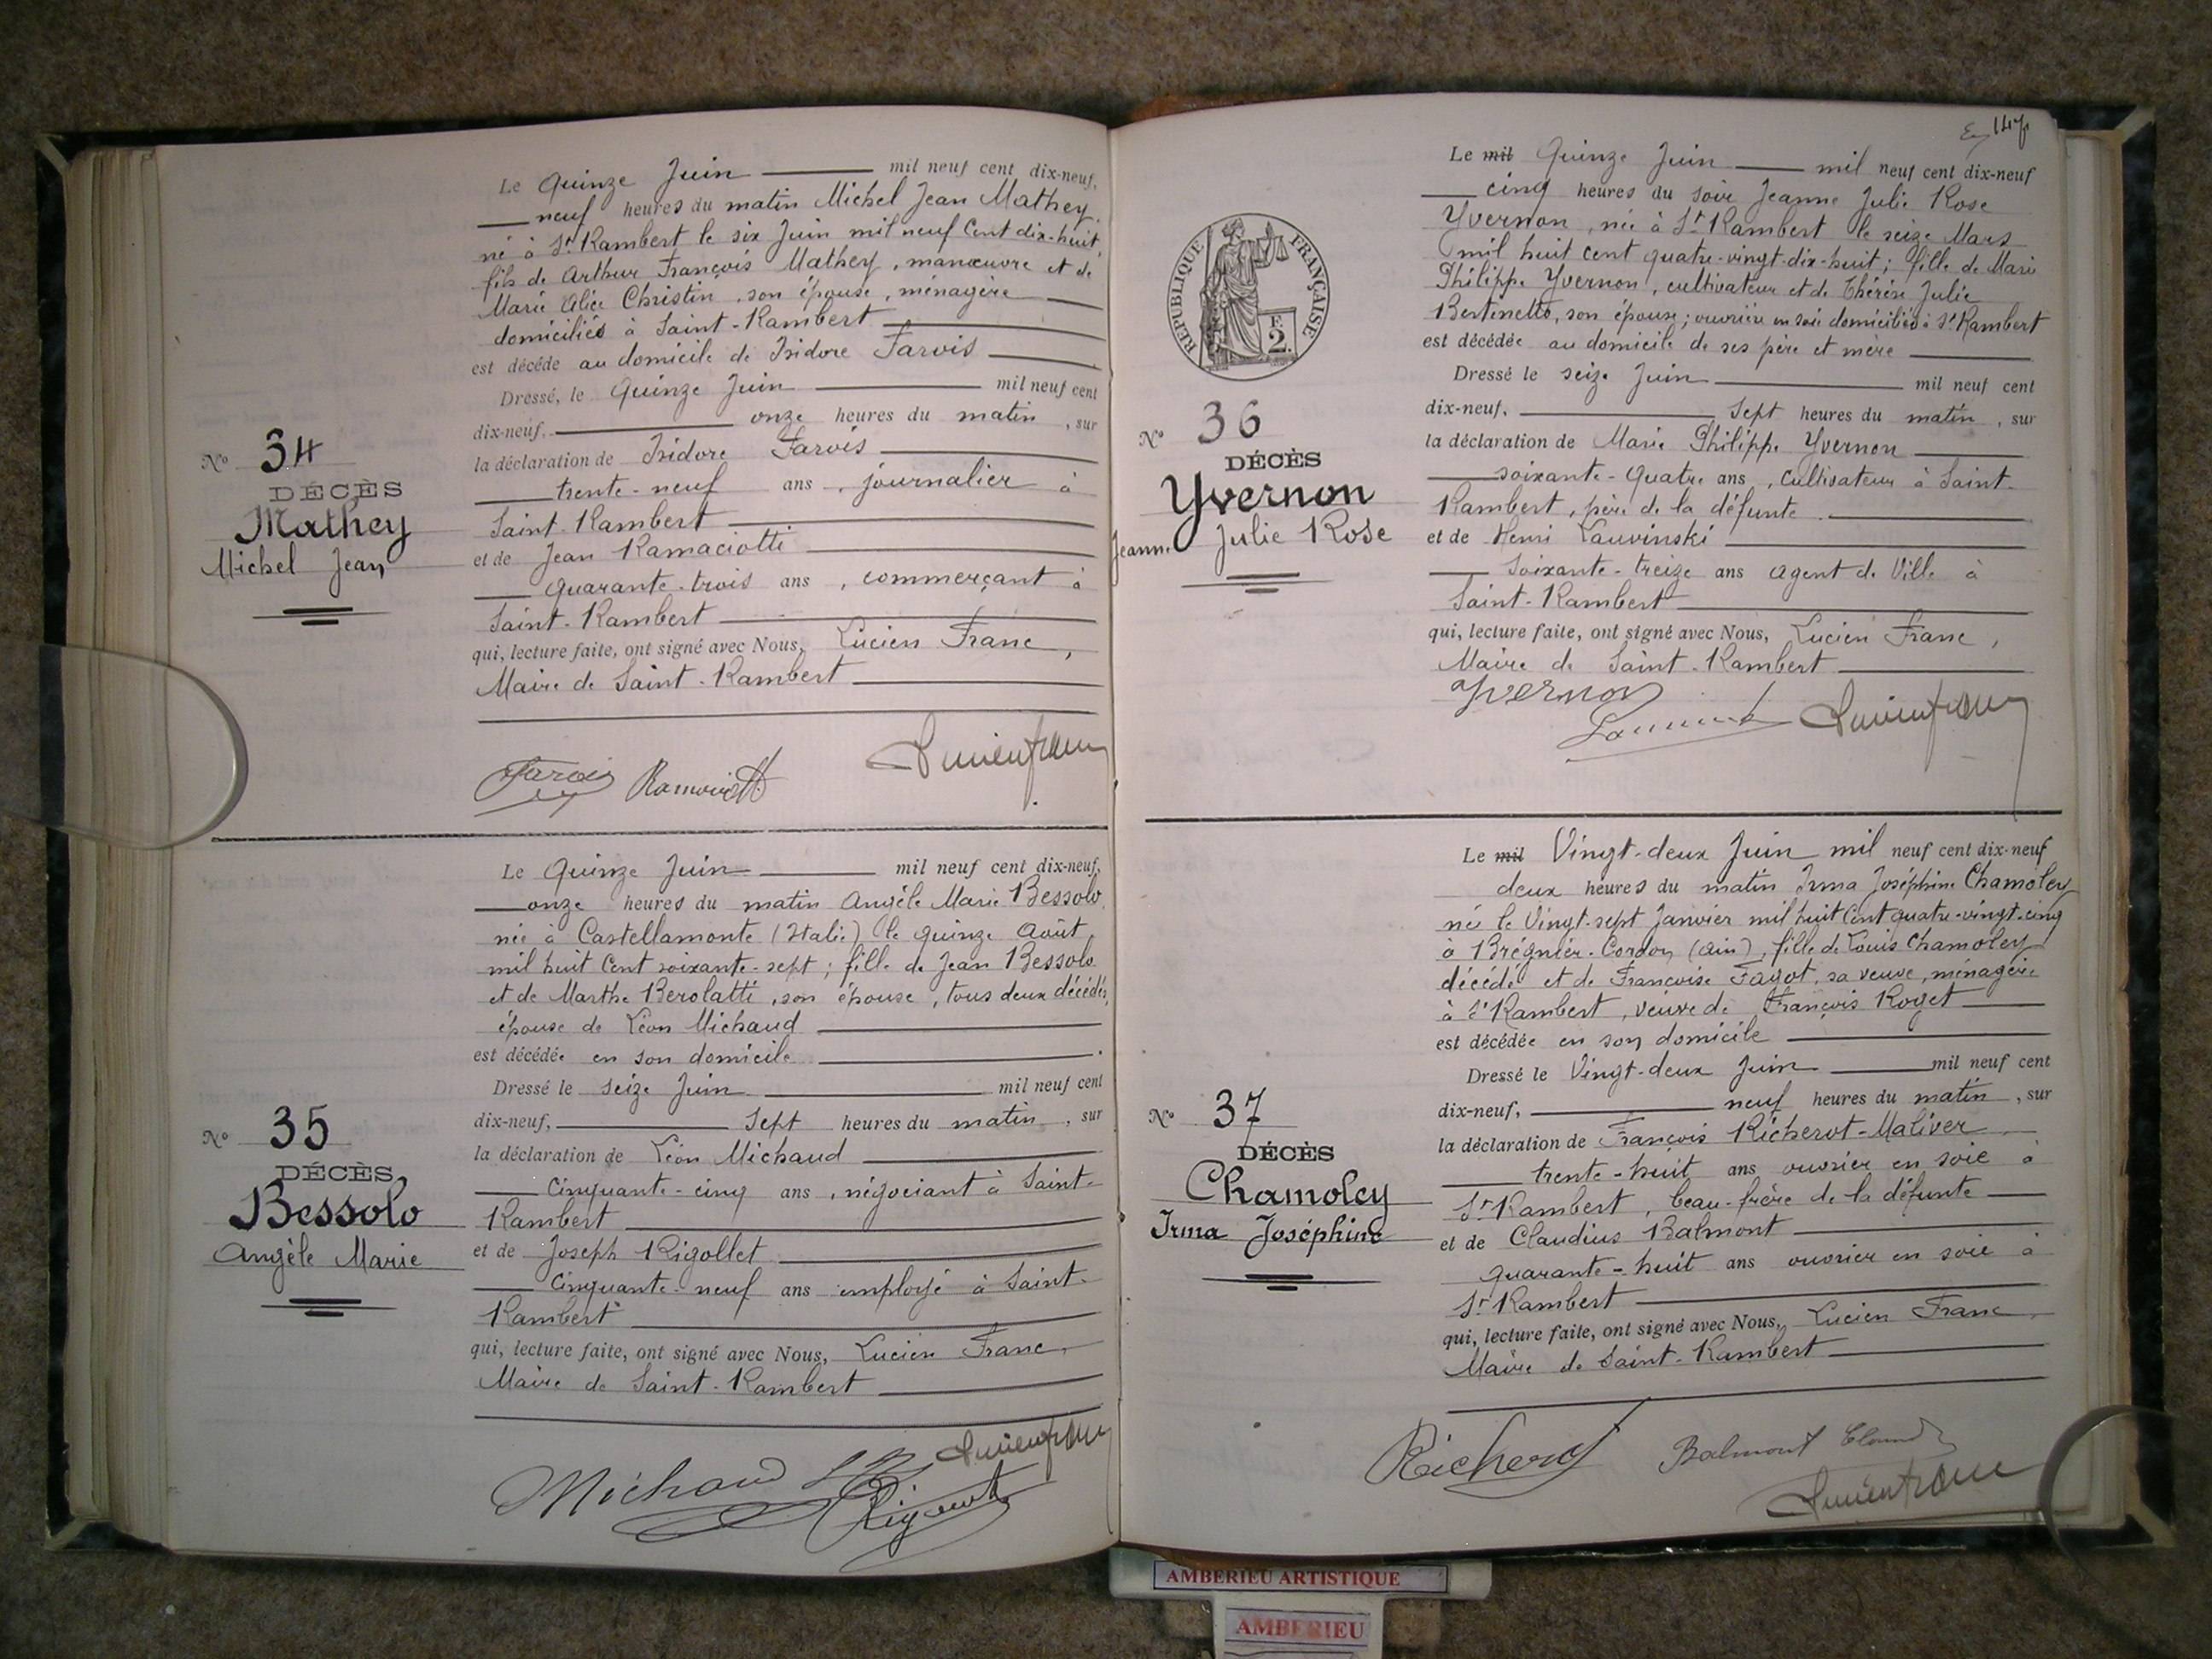 Le Quinze Juin mil neuf cent dix-neuf,
neuf heures du matin Michel Jean Mathey,
né à St Rambert le six Juin mil neuf Cent dix-huit,
fils de Arthur François Mathey, manœuvre et de
Marie Alice Christin, son épouse, ménagère
domiciliés à Saint-Rambert
est décédé au domicile de Isidore Farvis
Dressé, le Quinze Juin mil neuf cent
dix-neuf, onze heures du matin, sur
la déclaration de Isidore Farvis
trente-neuf ans, journalier à
Saint-Rambert
et de Jean Ramaciotti
quarante-trois ans, commerçant à
Saint-Rambert
qui, lecture faite, ont signé avec Nous, Lucien Franc,
Maire de Saint-Rambert
No 34
DÉCÈS
Mathey
Michel Jean
Le Quinze Juin mil neuf cent dix-neuf,
onze heures du matin Angèle Marie Bessolo,
née à Castellamonte (Italie) le quinze Août
mil huit Cent soixante-sept; fille de Jean Bessolo
et de Marthe Berolatti, son épouse, tous deux décédés,
épouse de Léon Michaud
est décédée en son domicile.
Dressé le seize Juin mil neuf cent
dix-neuf, Sept heures du matin, sur
la déclaration de Léon Michaud
Cinquante-cinq ans, négociant à Saint-
Rambert
et de Joseph Rigollet
Cinquante-neuf ans employé à Saint-
Rambert
qui, lecture faite, ont signé avec Nous, Lucien Franc,
Maire de Saint-Rambert
Michaud
No 35
DÉCÈS,
Bessolo
Angèle Marie
147
Le mil Quinze Juin mil neuf cent dix-neuf
cinq heures du soir Jeanne Julie Rose
Yvernon, née à St Rambert le seize Mars
mil huit cent quatre-vingt-dix-huit; fille de Marie
Philippe Yvernon, cultivateur et de Thérèse Julie
Bertinetto, son épouse; ouvrière en soie domiciliés à St Rambert
est décédée au domicile de ses père et mère
Dressé le seize Juin mil neuf cent
dix-neuf, Sept heures du matin, sur
la déclaration de Marie Philippe Yvernon
soixante-quatre ans, Cultivateur à Saint-
Rambert, père de la défunte
et de Henri Lauvinski
Soixante-treize ans agent de Ville à
Saint-Rambert
qui, lecture faite, ont signé avec Nous, Lucien Franc,
Maire de Saint-Rambert
Yvernon
RÉPUBLIQUE FRANÇAISE
F.
2.
No 36
DÉCÈS
Yvernon
Jeanne Julie Rose
Le mil Vingt-deux Juin mil neuf cent dix-neuf
deux heures du matin Irma Joséphine Chamoley
née le Vingt-sept Janvier mil huit Cent quatre-vingt-cinq
à Brégnier-Cordon (Ain), fille de Louis Chamoley
décédé et de Françoise Fagot, sa veuve, ménagère
à St Rambert, veuve de François Roget
est décédée en son domicile
Dressé le Vingt-deux Juin mil neuf cent
dix-neuf, neuf heures du matin, sur
la déclaration de François Richerot-Maliver
trente-huit ans ouvrier en soie à
St Rambert, beau-frère de la défunte
et de Claudius Balmont
quarante-huit ans ouvrier en soie à
St Rambert
qui, lecture faite, ont signé avec Nous, Lucien Franc,
Maire de Saint-Rambert
Richerot Balmont
No 37
DÉCÈS
Chamoley
Irma Joséphine
AMBERIEU ARTISTIQUE
AMBERIEU